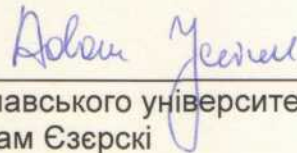 Adam Jezierski
лавського університе
ам Єзєрскі